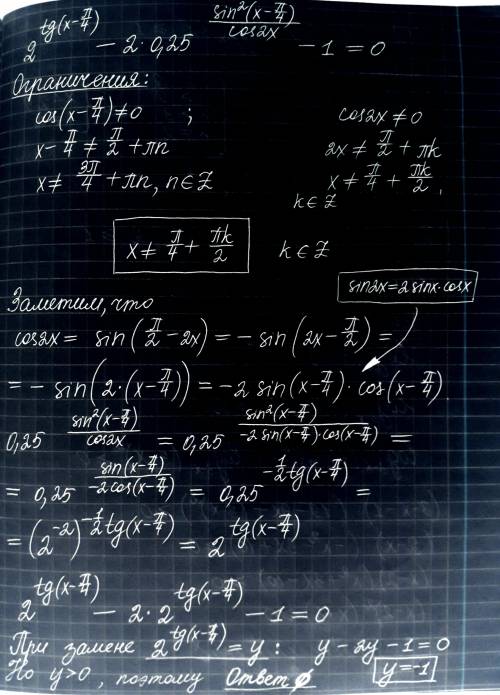 2^{tg(x-π/4)} - 2·0,25^{sin²(x-π/4)/cos2x} - 1 = 0
Ограничения:
cos(x-π/4)≠0 ; cos2x≠0
x-π/4≠π/2+πn 2x≠π/2+πk
x≠3π/4+πn, n∈Z x≠π/4+πk/2,
k∈Z
x≠π/4+πk/2 k∈Z
sin2x=2sinx·cosx
Заметим, что
cos2x = sin(π/2-2x) = -sin(2x-π/2) =
= -sin(2·(x-π/4)) = -2sin(x-π/4)·cos(x-π/4).
0,25^{sin²(x-π/4)/cos2x} = 0,25^{sin²(x-π/4)/-2sin(x-π/4)·cos(x-π/4)} =
= 0,25^{sin(x-π/4)/-2cos(x-π/4)} = 0,25^{-1/2tg(x-π/4)} =
= (2^{-2})^{-1/2tg(x-π/4)} = 2^{tg(x-π/4)}
2^{tg(x-π/4)} - 2·2^{tg(x-π/4)} - 1 = 0
При замене 2^{tg(x-π/4)} = y: y-2y-1=0
Но y>0, поэтому Ответ ∅ y=-1